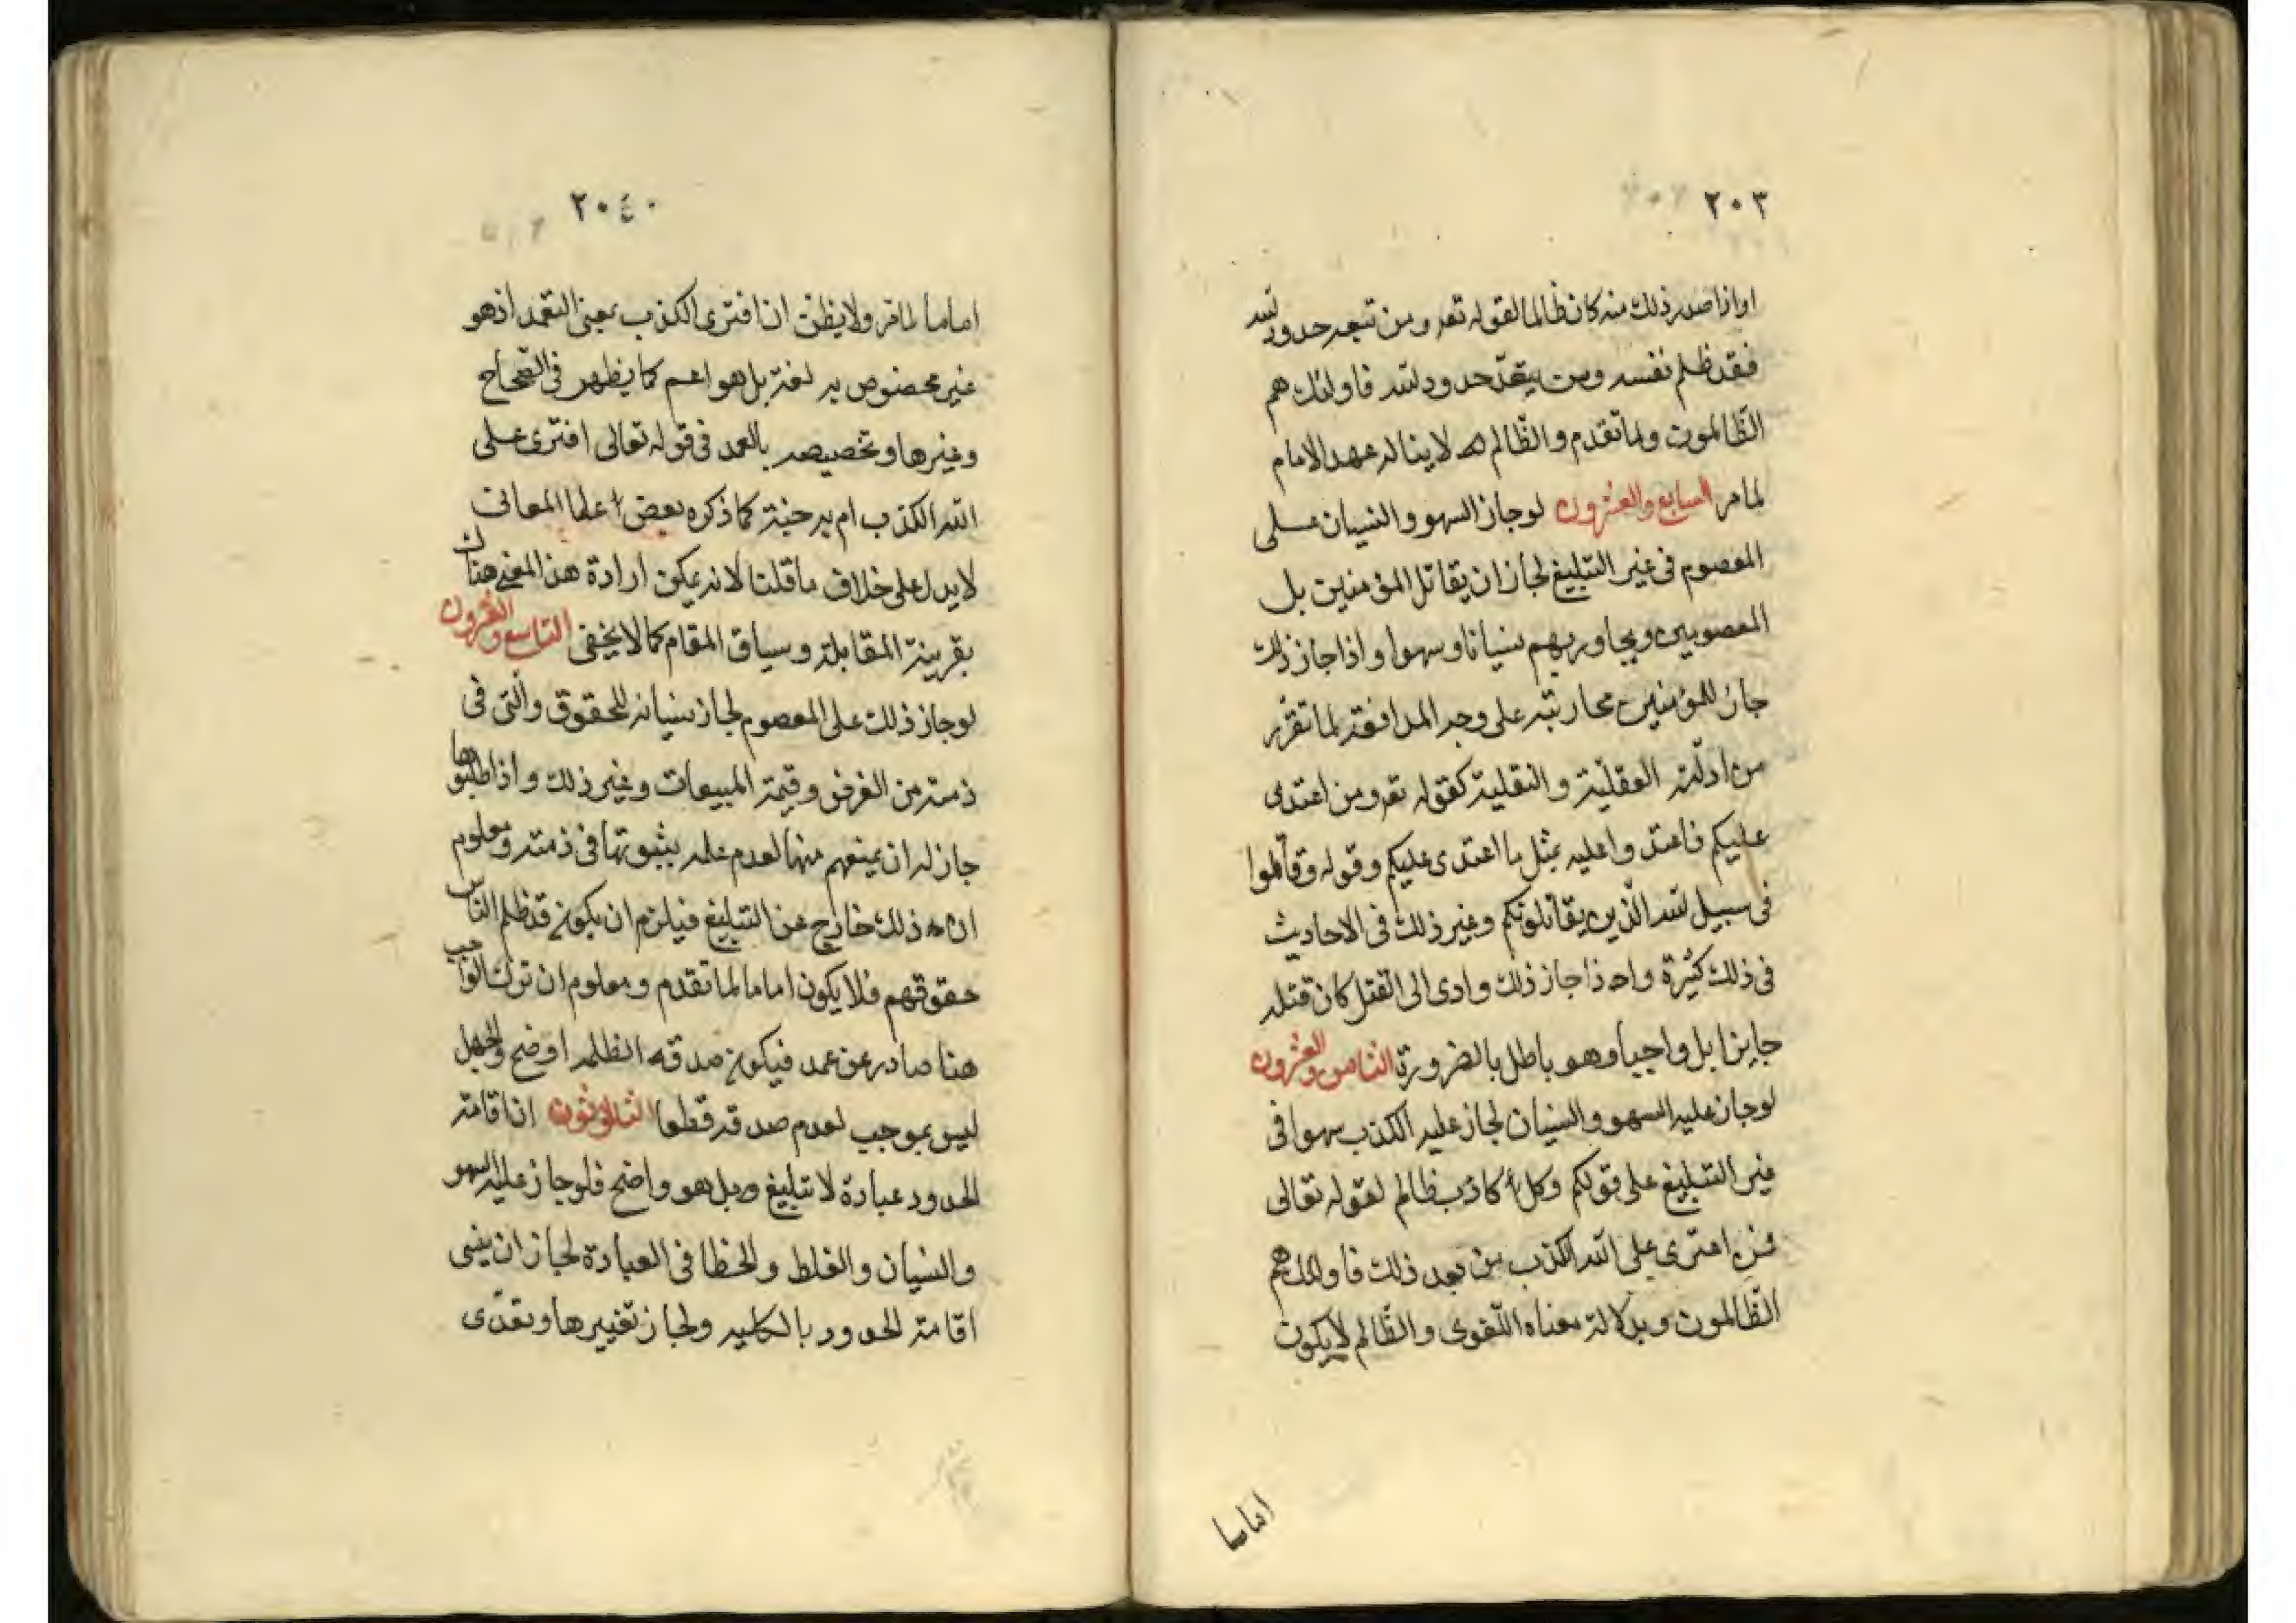 ٢٠٣
اواذا صدر ذلك منه كان ظالما لقوله تعه ومن تتعد حدود لله
فقد ظلم نفسه ومن يتعدّ حدود لله فاولئك هم
الظّالمون ولما تقدم والظّالم لا يناله عهد الامام
لما مر السابع والعشرون لو جاز السهو والنسيان على
المعصوم فى غير التبليغ لجاز ان يقاتل المؤمنين بل
المعصومين ويحاوربهم نسيانا وسهوا واذا جاز ذلك
جاز للمؤمنين محاربته على وجه المدافعة لما تقرّر
من ادلّة العقليّة والنقلية كقوله تعه ومن اعتدى
عليكم فاعتدوا عليه بمثل ما اعتدى عليكم وقوله وقاتلوا
فى سبيل لله الّذين يقاتلونكم وغير ذلك فى الاحاديث
فى ذلك كثيرة واذا جاز ذلك وادى الى القتل كان قتله
جايزا بل واجبا وهو باطل بالضرورة الثامن والعشرون
لو جاز عليه السهو والنسيان لجاز عليه الكذب سهوا فى
غير التبليغ على قولكم وكل كاذب ظالم لقوله تعالى
فمن افترى على الله الكذب من بعد ذلك فاولئك هم
الظّالمون وبدلالة معناه اللّغوى والظّالم لا يكون
اماما
٢٠٤
اماما لما مر ولا يظن ان افترى الكذب بمعنى التعمد اذ هو
غير مخصوص به لغة بل هو اعم كما يظهر فى الصّحاح
وغيرها وتخصيصه بالعمد فى قوله تعالى افترى على
الله الكذب ام به جنة كما ذكره بعض علما المعانى
لا يدل على خلاف ما قلنا لانه يمكن ارادة هذا المعنى هناك
بقرينة المقابلة وسياق المقام كما لا يخفى التاسع والعشرون
لو جاز ذلك على المعصوم لجاز نسيانه للحقوق والّتى فى
ذمته من القرض وقيمة المبيعات وغير ذلك واذا طلبوها
جاز له ان يمنعهم منها لعدم علمه بثبوتها فى ذمته ومعلوم
ان ذلك خارج عن التبليغ فيلزم ان يكون قد ظلم الناس
حقوقهم فلا يكون اماما لما تقدم ومعلوم ان ترك الواجب
هنا صادر عن عمد فيكون صدقه الظلم اوضح والجهل
ليس بموجب لعدم صدقه قطعا الثلاثون ان اقامة
الحدود عبادة لا تبليغ وبل هو واضح فلو جاز عليه السهو
والنسيان والغلط والخطا فى العبادة لجاز ان ينسى
اقامة الحدود بالكلية ولجاز تغييرها وتعدّى